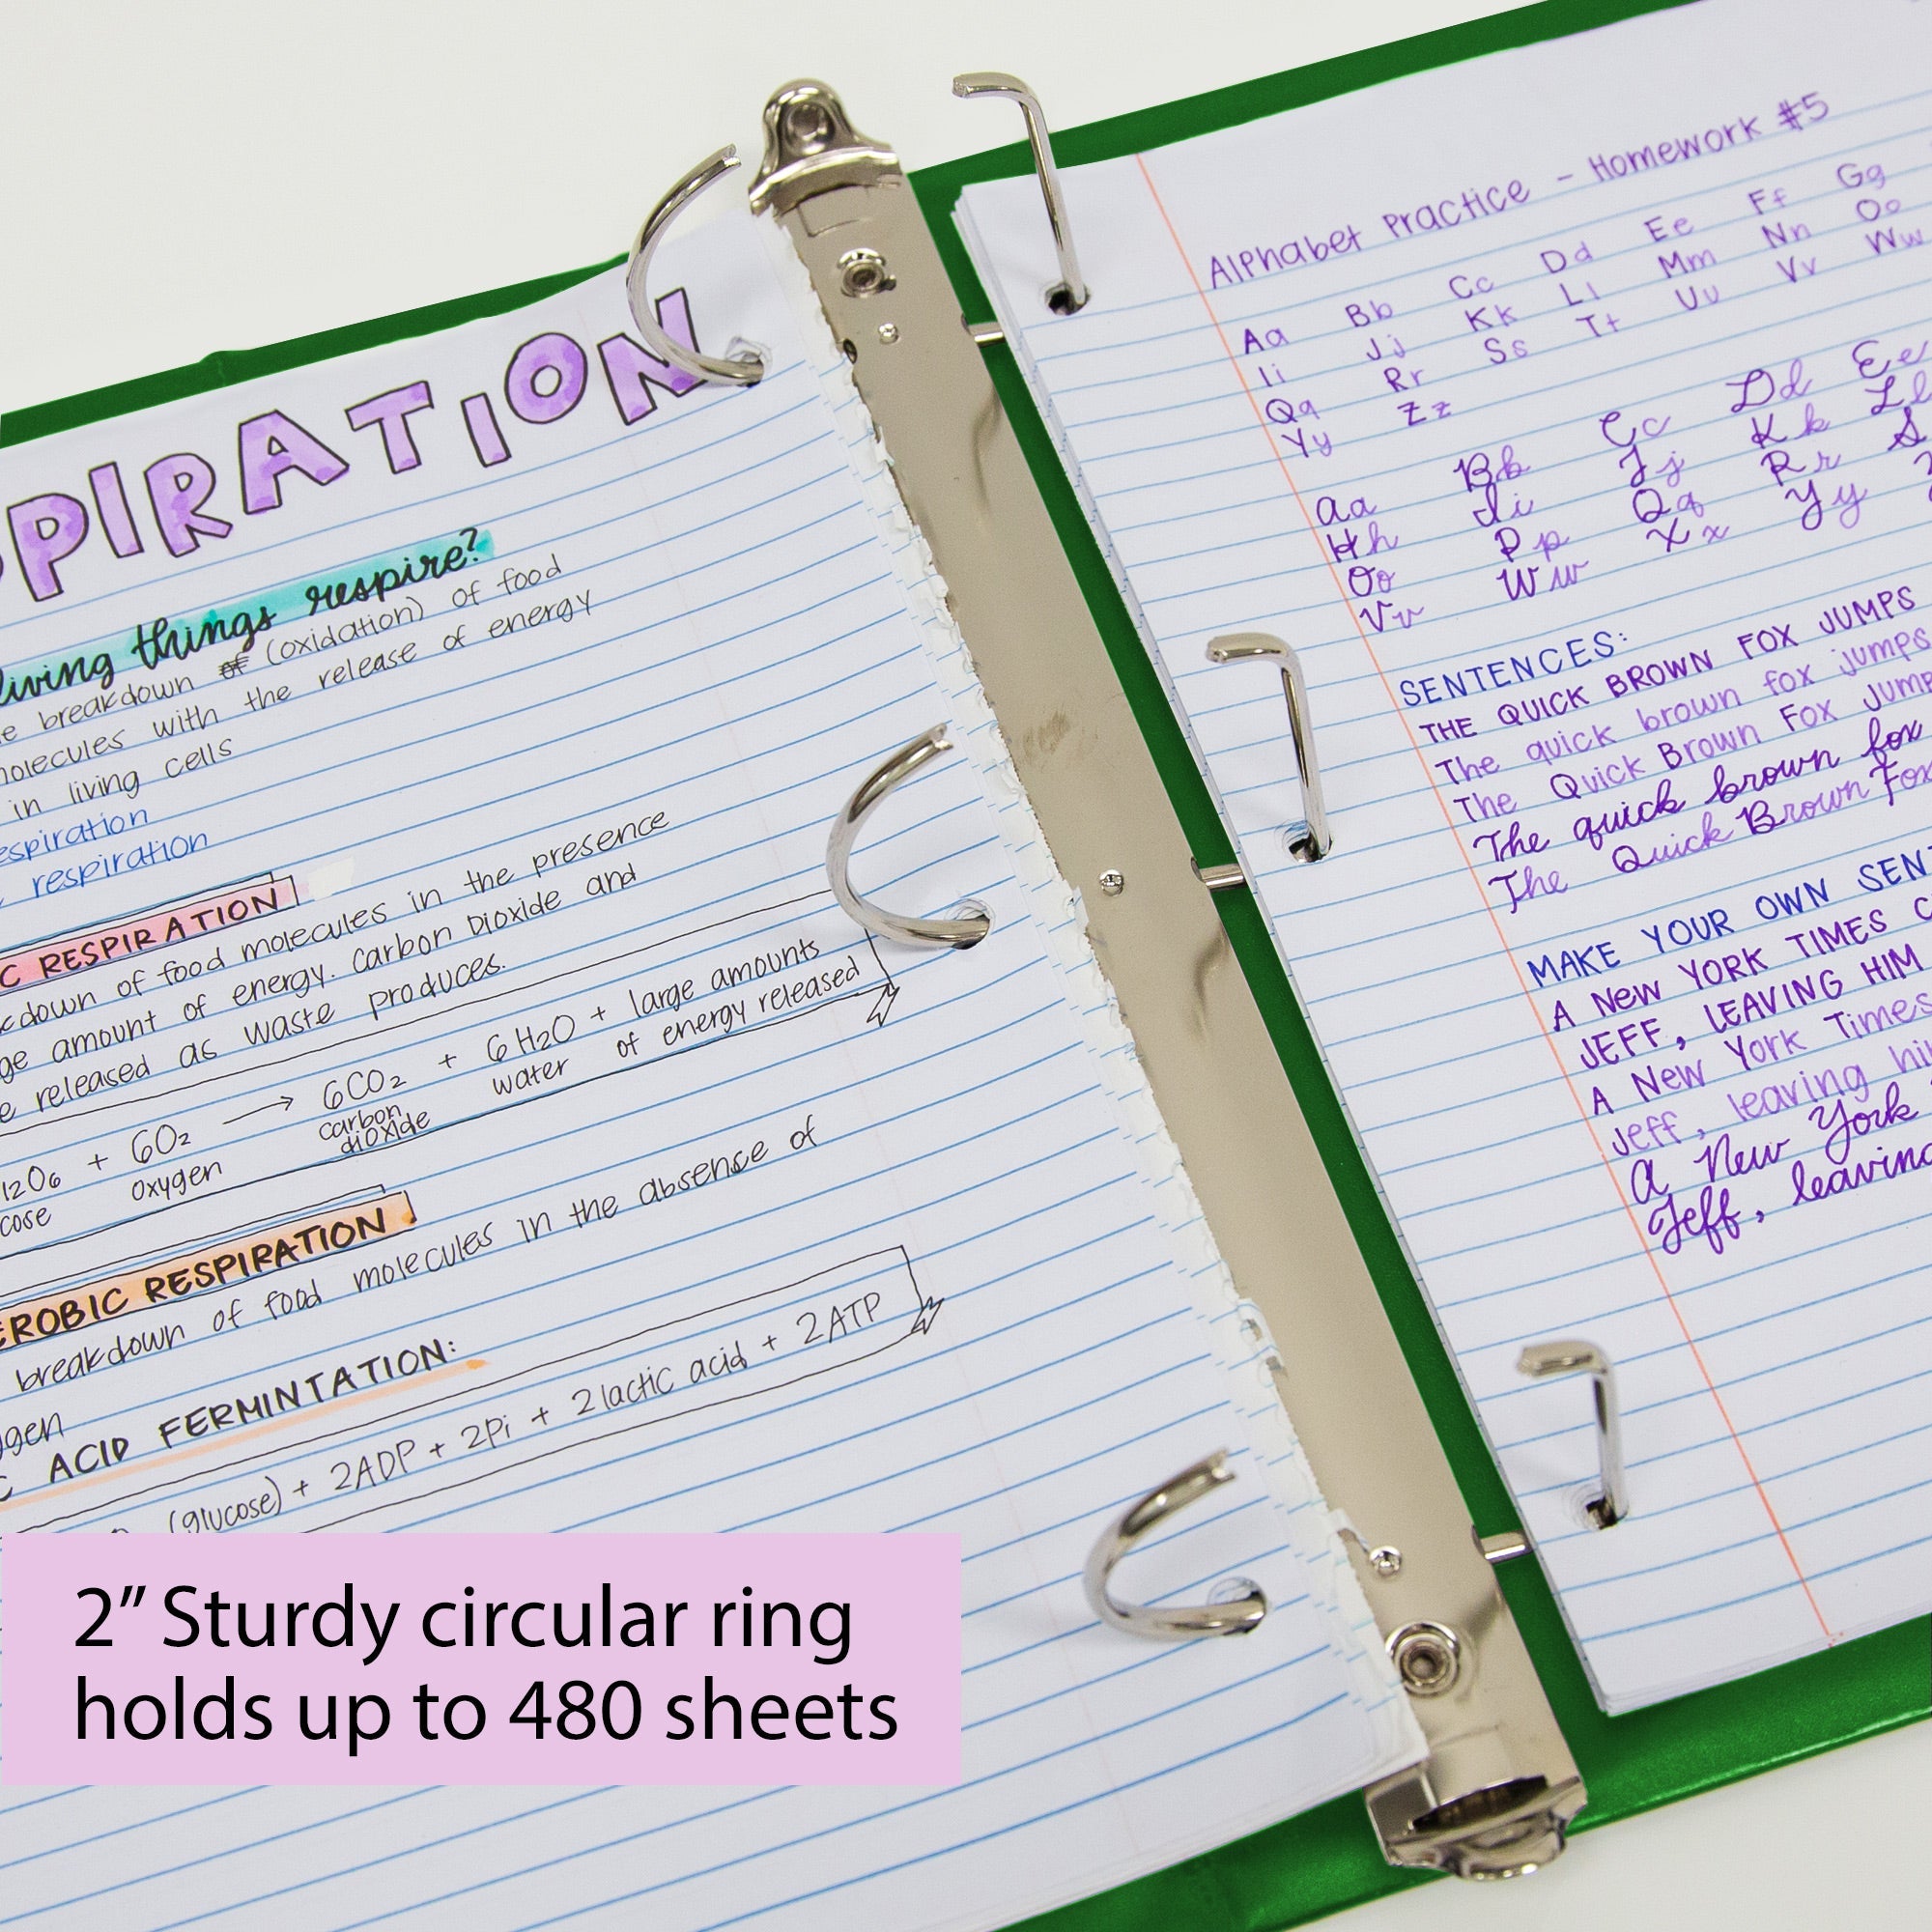 PIRATION
living things respire?
breakdown of (oxidation) of food
molecules with the release of energy
in living cells
respiration
respiration
C RESPIRATION
down of food molecules in the presence
amount of energy. Carbon Dioxide and
released as waste produces.
12O6 + 6O2 → 6CO2 + 6H2O + large amounts
cose oxygen carbon dioxide water of energy released
EROBIC RESPIRATION
breakdown of food molecules in the absence of
gen
C ACID FERMINTATION:
(glucose) + 2ADP + 2Pi + 2 lactic acid + 2ATP
2” Sturdy circular ring
holds up to 480 sheets
Alphabet Practice - Homework #5
Aa Bb Cc Dd Ee Ff Gg
Ii Jj Kk Ll Mm Nn Oo
Qq Rr Ss Tt Uu Vv Ww
Yy Zz
Aa Bb Cc Dd Ee
Hh Ii Jj Kk Ll
Oo Pp Qq Rr S
Vv Ww Xx Yy
SENTENCES:
THE QUICK BROWN FOX JUMPS
The quick brown fox jumps
The Quick Brown Fox Jump
The quick brown fox
The Quick Brown Fox
MAKE YOUR OWN SENT
A New YORK TIMES C
JEFF, LEAVING HIM
A New York Times
Jeff, leaving hi
A New York
Jeff, leaving